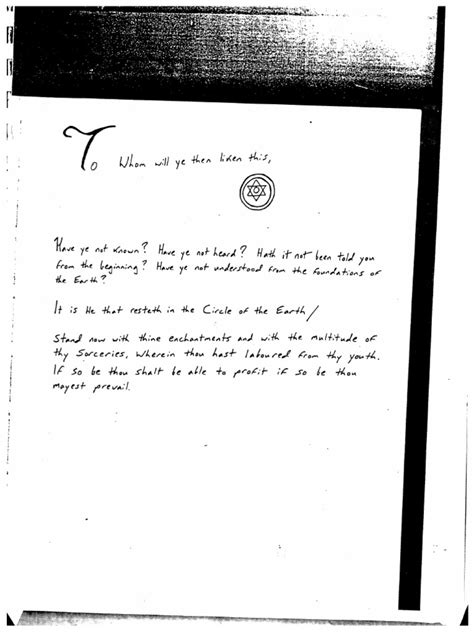 To Whom will ye then liken this,
Have ye not known? Have ye not heard? Hath it not been told you
from the beginning? Have ye not understood from the foundations of
the Earth?
It is He that resteth in the Circle of the Earth/
Stand now with thine enchantments and with the multitude of
thy Sorceries, wherein thou hast laboured from thy youth.
If so be thou shalt be able to profit if so be thou
mayest prevail.